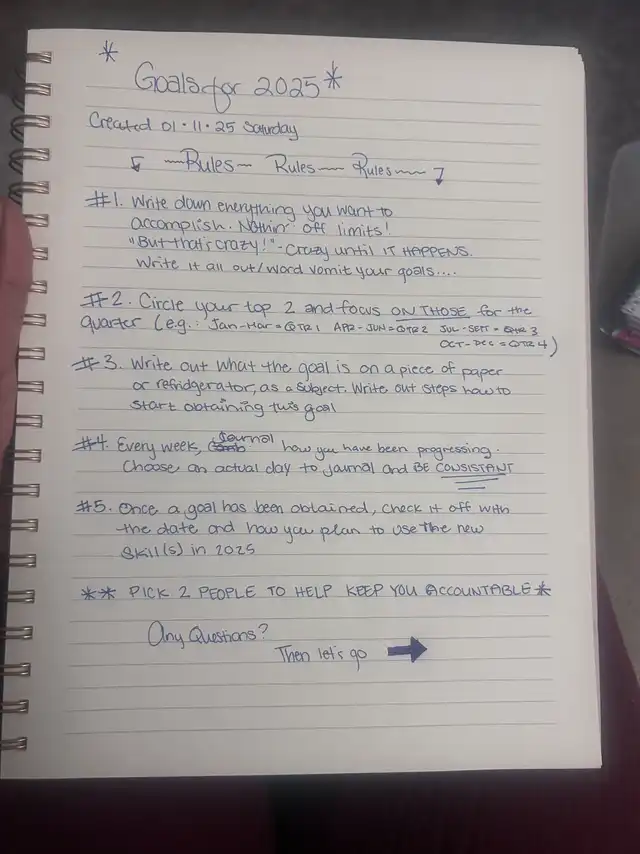 *
Goals for 2025*
Created 01·11·25 Saturday
Rules Rules Rules
#1. Write down everything you want to
accomplish. Nothin' off limits!
"But that's crazy!" - Crazy until IT HAPPENS.
Write it all out/word vomit your goals....
#2. Circle your top 2 and focus ON THOSE for the
quarter (e.g.: Jan-Mar = QTR 1 APR-JUN = QTR 2 JUL-SEPT = QTR 3
OCT-DEC = QTR 4)
#3. Write out what the goal is on a piece of paper
or refridgerator, as a subject. Write out steps how to
start obtaining this goal
#4. Every week, Journal how you have been progressing.
Choose an actual day to journal and BE CONSISTANT
#5. Once a goal has been obtained, check it off with
the date and how you plan to use the new
skill(s) in 2025
** PICK 2 PEOPLE TO HELP KEEP YOU ACCOUNTABLE*
Any Questions?
Then let's go →